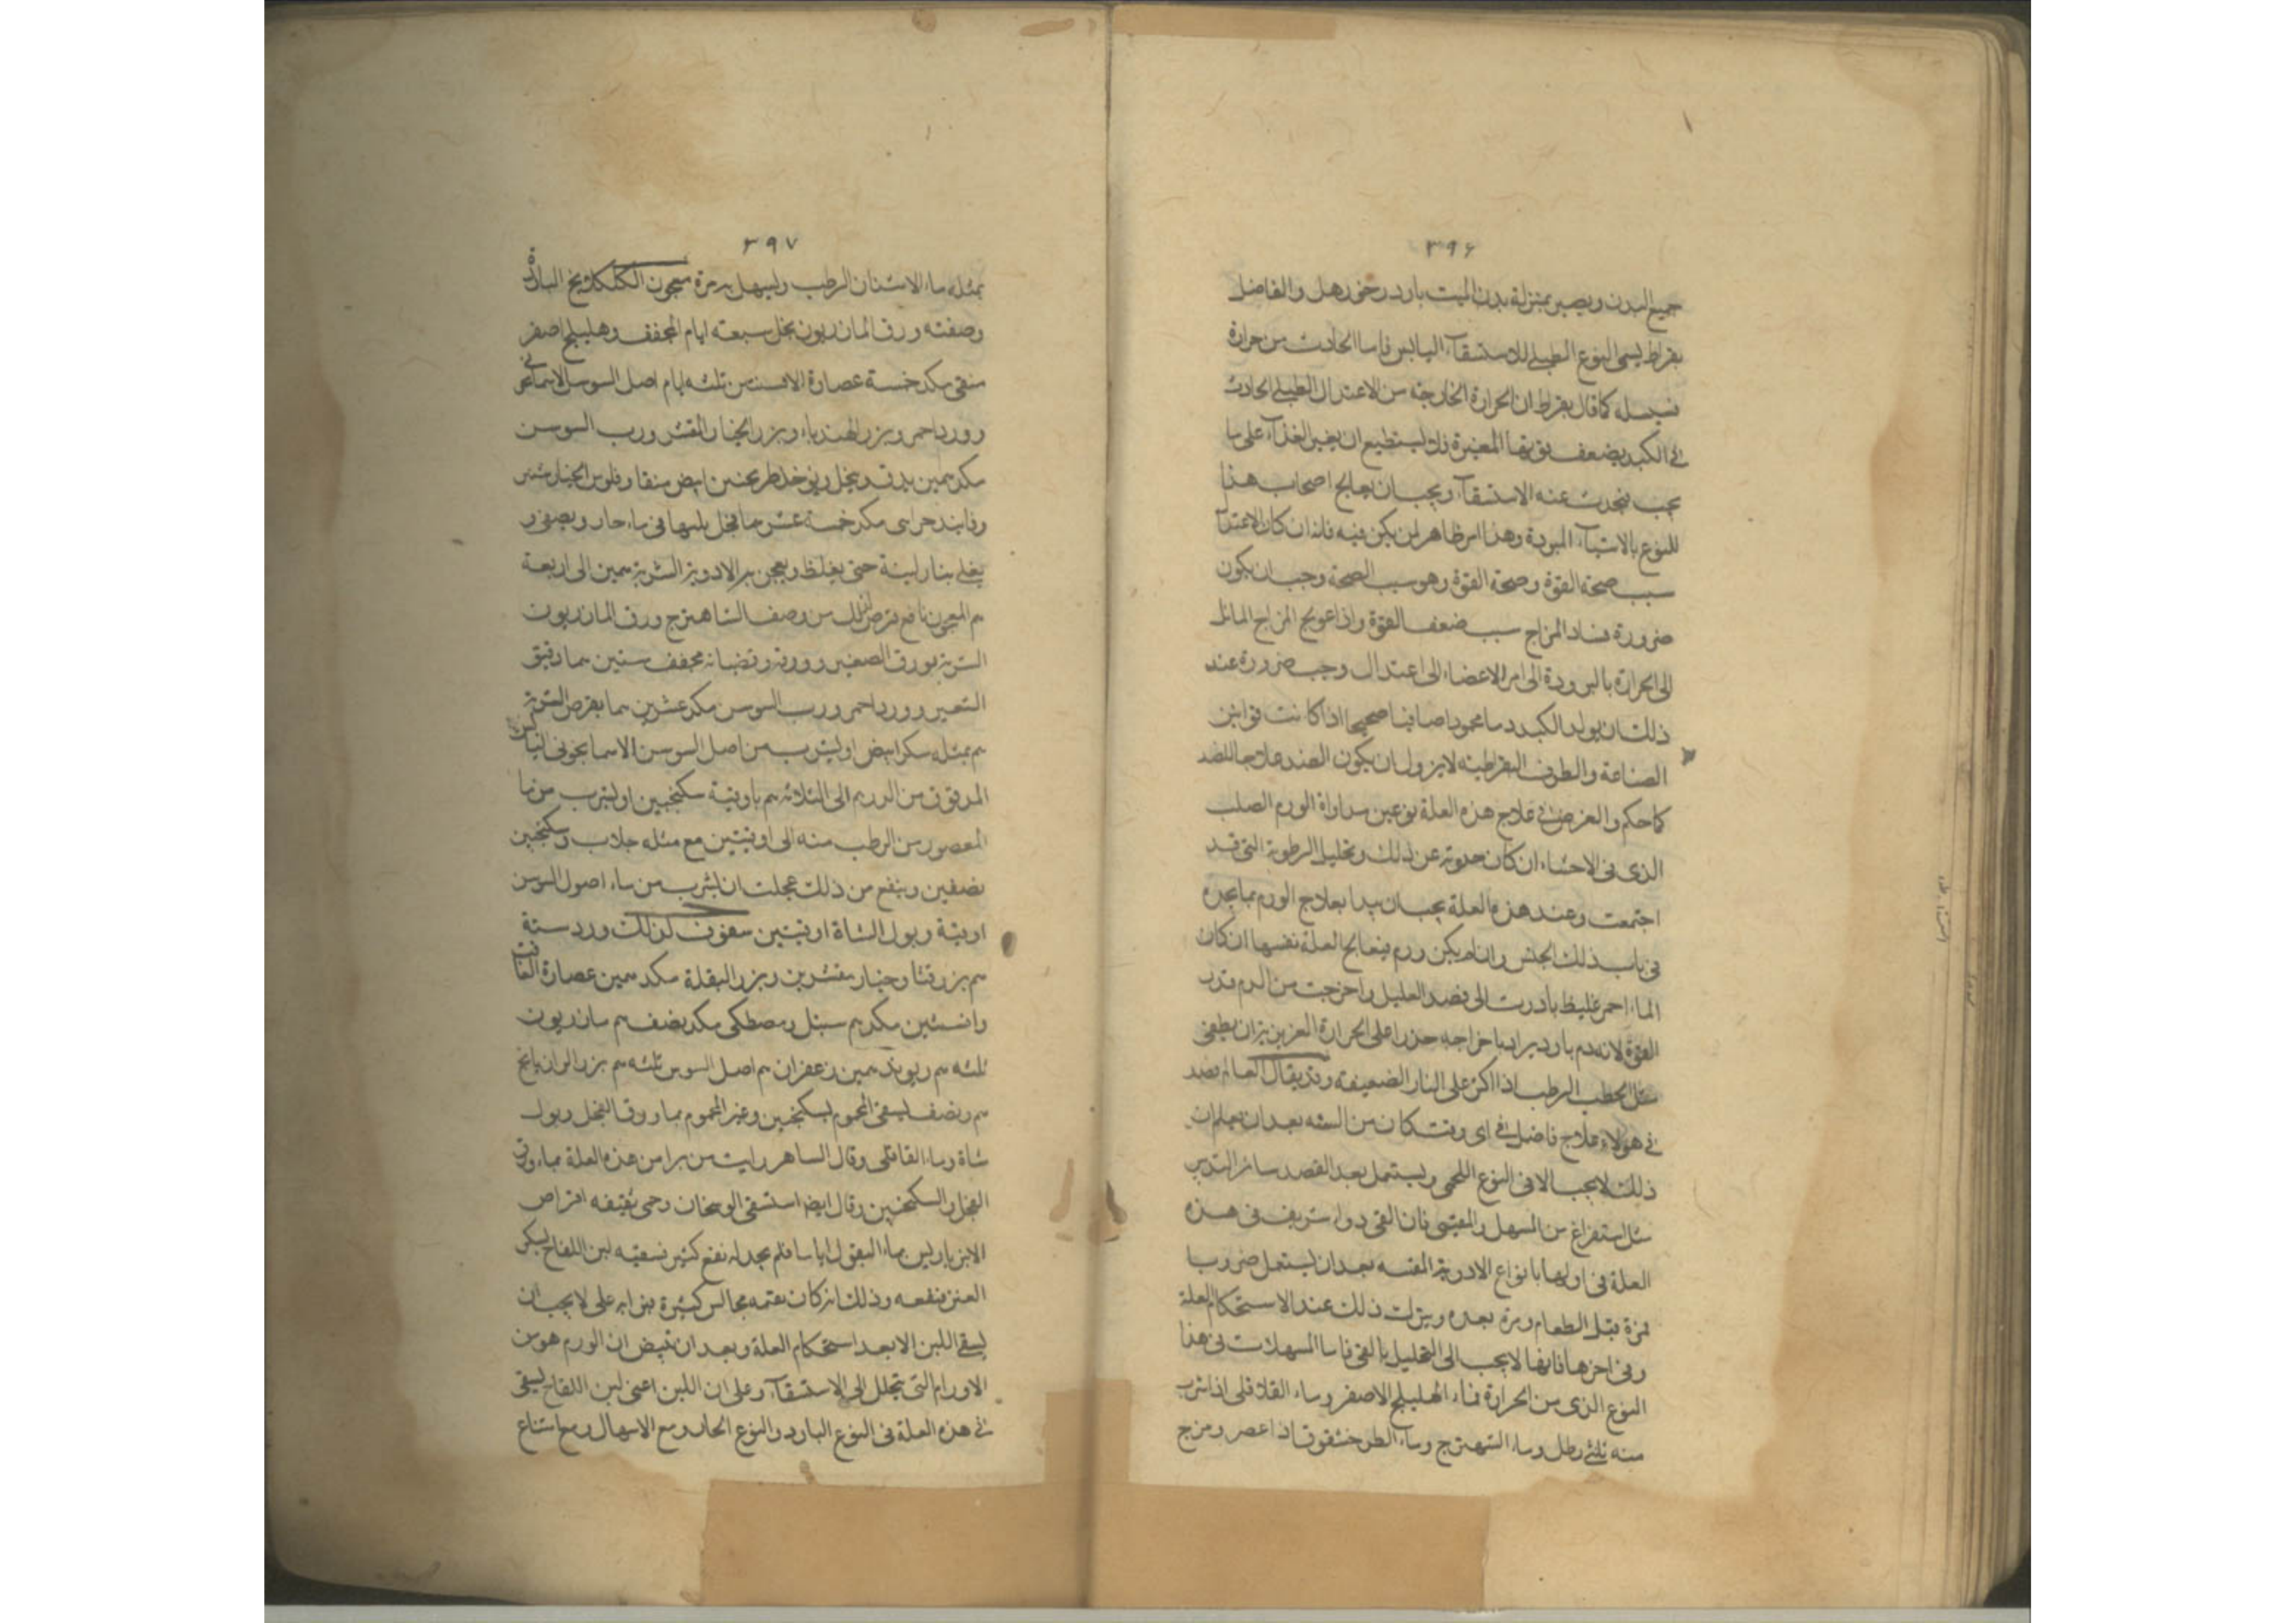 ٣٩۶
جميع البدن ويصير بمنزلة بدن الميت بارد رخو رهل والفاضل
بقراط يسمى النوع الطبلى للاستسقآء اليابس فاما الحادث من حرارة
فسيله كما قال بقراط ان الحرارة الخارجة من الاعتدال الطبيعى الحادث
فى الكبد يضعف قوتها المغيرة فلا يستطيع ان يغير الغذآء على ما
يجب فيحدث عنه الاستسقآء ويجب ان يعالج اصحاب هذا
النوع بالاشيآء المبردة وهذا امر ظاهر لمن يكن فيه فانه ان كان الاعتدال
سبب صحة القوة وصحة القوة وهو سبب الصحة وجب ان يكون
ضرورة فساد المزاج سبب ضعف القوة واذا عولج المزاج المائل
الى الحرارة بالبرودة الى امر الاعضاء الى اعتدال وجب ضرورة عند
ذلك ان يولد الكبد دما محمودا صافيا صحيحا اذا كانت قوانين
الصناعة والطرق البقراطية لا يزول ان يكون الضد علاجا للضد
كما حكم والغرض فى علاج هذه العلة نوعين مداواة الورم الصلب
الذى فى الاحشاء ان كان حدوثه عن ذلك وتحليل الرطوبة التى قد
اجتمعت وعند هذه العلة يجب ان يبدا بعلاج الورم بما يجده
فى باب ذلك الجنس وان لم يكن ورم فيعالج العلة نفسها ان كان
الماء احمر غليظ بادرت الى فصد العليل واخرجت من الدم قدر
القوة لانه دم بارد يراد باخراجه حذرا على الحرارة الغريزية ان يطفى
مثل الحطب الرطب اذا اكثر على النار الضعيفة وقد يقال العالم بصد
فى هولاء علاج فاضل فى اى وقت كان من السنه بعد ان يعلم ان
ذلك لا يجب الا فى النوع اللحمى ويستعمل بعد الفصد سائر التدبير
مثل استفراغ من المسهل والمقيئ فان القى دواء شريف فى هذه
العلة فى اولها بانواع الادوية المقيه بعد ان يستعمل ضروبا
مرة قبل الطعام ومرة بعده ويترك ذلك عند الاستحكام العلة
وفى اخرها فانها لا يجب الى التحليل بالقى فاما المسهلات فى هذا
النوع الذى من الحرارة فماء الهليلج الاصفر وماء القلاقلى اذا شرب
منه ثلثى رطل وماء الشهترج وماء الطرخشقوق اذا عصر ومزج
٣٩٧
بمثله ماء الاشنان الرطب وليسهل بمرة معجون الكلكلانج الباردة
وصفته ورق المازريون بخل سبعة ايام المجفف وهليلج اصفر
منقى مكد خمسة عصارة الافسنتين ثلثه ايام اصل السوسن الاسمانجونى
وورد احمر وبزر الهندباء وبزر الخيار المقشر ورب السوسن
مكد همين يدق وينخل ويوخذ طرنجبين ابيض منقا وفلوس الخيارشنبر
وفانيد حراى مكد خمسة عشر هما فيخل بلبها فى ماء حار ويصفى و
يغلى بنار لينة حتى يغلظ ويعجن به الادوية الشربة همين الى اربعة
هم المعجون نافع قرص لذلك من وصف الشاهترج ورق المازريون
الشربة بورق الصغير وورقه وقضبانه مجفف ستين هما دقيق
الشعير وورد احمر ورب السوسن مكد عشرين هما يقرص الشربة
هم بمثله سكر ابيض او يشرب من اصل السوسن الاسمانجونى اليابس
المدقوق من الدرهم الى الثلاثة هم باوقية سكنجبين او يشرب من ماء
المعصور من الرطب منه الى اوقيتين مع مثله جلاب وسكنجبين
نصفين وينفع من ذلك عجلت ان يشرب من ماء اصول السوسن
اوقية وبول الشاة اوقيتين سفوف لذلك ورد ستة
هم بزر قثا وخيار مقشرين وبزر البقلة مكد همين عصارة الغافت
وافسنتين مكد هم سنبل ومصطكى مكد نصف هم مازريون
ثلثه هم ريوند همين زعفران هم اصل السوس ثلثه هم بزر الرازيانج
هم ونصف ليسقى المحموم بسكنجبين وغير المحموم بماء ورق الفجل وبول
شاة وماء القاقلى وقال الساهر رايت من برا من هذه العلة بماء ورق
الفجل والسكنجبين وقال ايضا استسقى الوسخان وحمى يقيفه اقراص
الانبرباريس بماء البقول اياما فلم يجد له نفع كثير فسقيه لبن اللقاح بسكر
العشر ينفعه وذلك انه كان يقيمه مجالس كثيرة بنى ابه على لا يجب ان
يسقى اللبن الا بعد استحكام العلة وبعد ان تيقن ان الورم هو من
الاورام التى يتحلل الى الاستسقآء وعلى ان اللبن اعنى لبن اللقاح ليسقى
فى هذه العلة فى النوع البارد والنوع الحار ومع الاسهال ومع امتناع